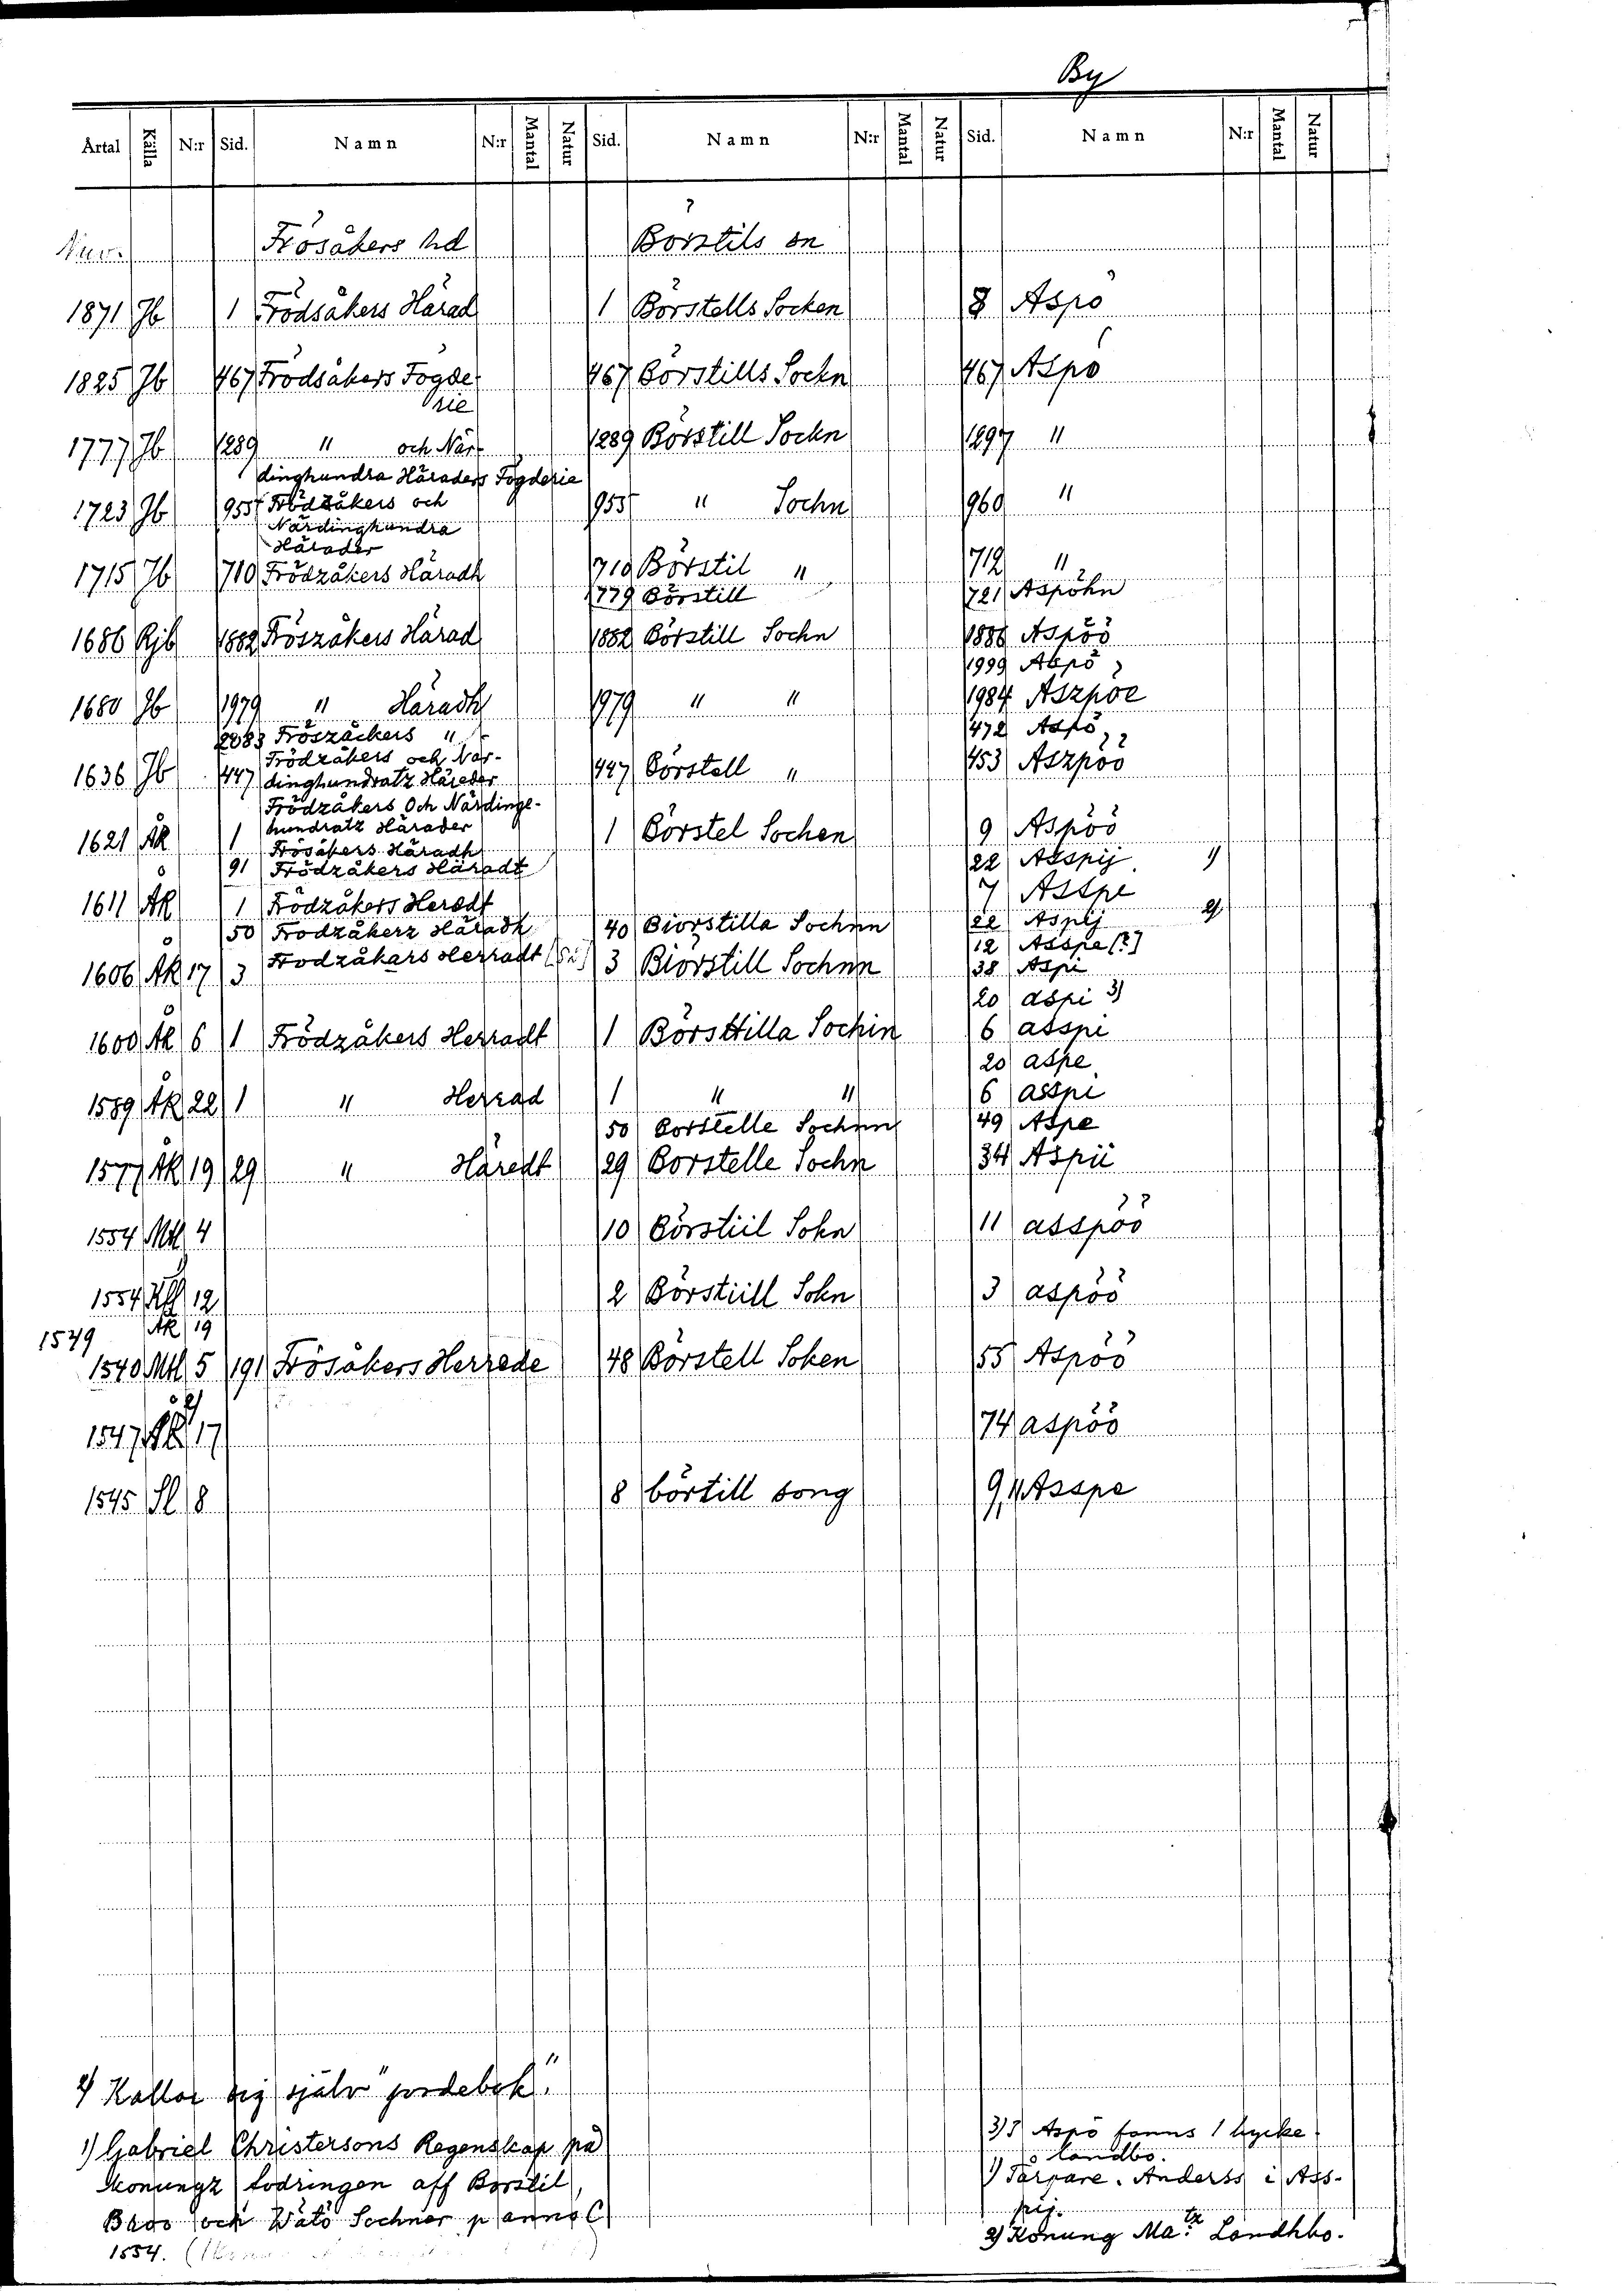 By
Årtal Källa N:r Sid. Namn N:r Mantal Natur Sid. Namn N:r Mantal Natur Sid. Namn N:r Mantal Natur
Nuv. Frösåkers hd Börstils sn
1871 Jb 1 Frödsåkers Härad 1 Börstells Socken 8 Aspö
1825 Jb 467 Frödsåkers Fögde- 467 Börstills Sockn 467 Aspö
rie
1777 Jb 1289 " och När- 1289 Börstill Sockn 1297 "
dinghundra Häraders Fögderie
1723 Jb 955 Frödzåkers och 955 " Sochn 960 "
Närdinghundra
Härader
1715 Jb 710 Frödzåkers Häradh 710 Börstil " 712 "
779 Börstill 721 Aspöhn
1686 Rjb 1882 Fröszåkers Härad 1882 Börstill Sochn 1886 Aspöö
1999 Aspö
1680 Jb 1979 " Häradh 1979 " " 1984 Aszpöe
2083 Fröszåckers " 472 Aspö
1636 Jb 447 Frödzåkers och När- 447 Börstell " 453 Aszpöö
dinghundratz Häreder
Frödzåkers Och Närdinge-
1621 Åk 1 hundratz Härader 1 Börstel Sochen 9 Aspöö
Frösåkers Häradh
91 Frödzåkers Häradt 22 Asspij 1)
1611 Åk 1 Frödzåkers Heradt 7 Asspe
50 Frodzåkerz Häradh 40 Biorstilla Sochnn 22 Aspij 2)
12 Asspe [?]
1606 Åk 17 3 Frodzåkars Herradt [Så] 3 Biörstill Sochnn 38 Aspi
20 aspi 3)
1600 Åk 6 1 Frödzåkers Herradt 1 Börsttilla Sochin 6 asspi
20 aspe
1589 Åk 22 1 " Herrad 1 " " 6 asspi
50 Borstelle Sochnn 49 Aspe
1577 Åk 19 29 " Häredt 29 Borstelle Sochn 34 Aspii
1554 Mtl 4 10 Börstiil Sokn 11 asspöö
1554 12 2 Börstiill Sokn 3 aspöö
1549 Åk 19
1540 Mtl 5 191 Frösåkers Herrede 48 Börstell Soken 55 Aspöö
1547 Åk 2) 17 74 aspöö
1545 Sl 8 8 börtill song 9, 11 Asspe
2) Kallar sig själv "jordebok".
1) Gabriel Christersons Regenskap på
Konungz fodringen aff Borstil,
och Wätö Sochnar p anno C
1554.
3) I Aspö fanns 1 lycke
landbo.
1) Torpare. Anderss i Ass-
pij.
2) Konung Ma:tz Landhbo.